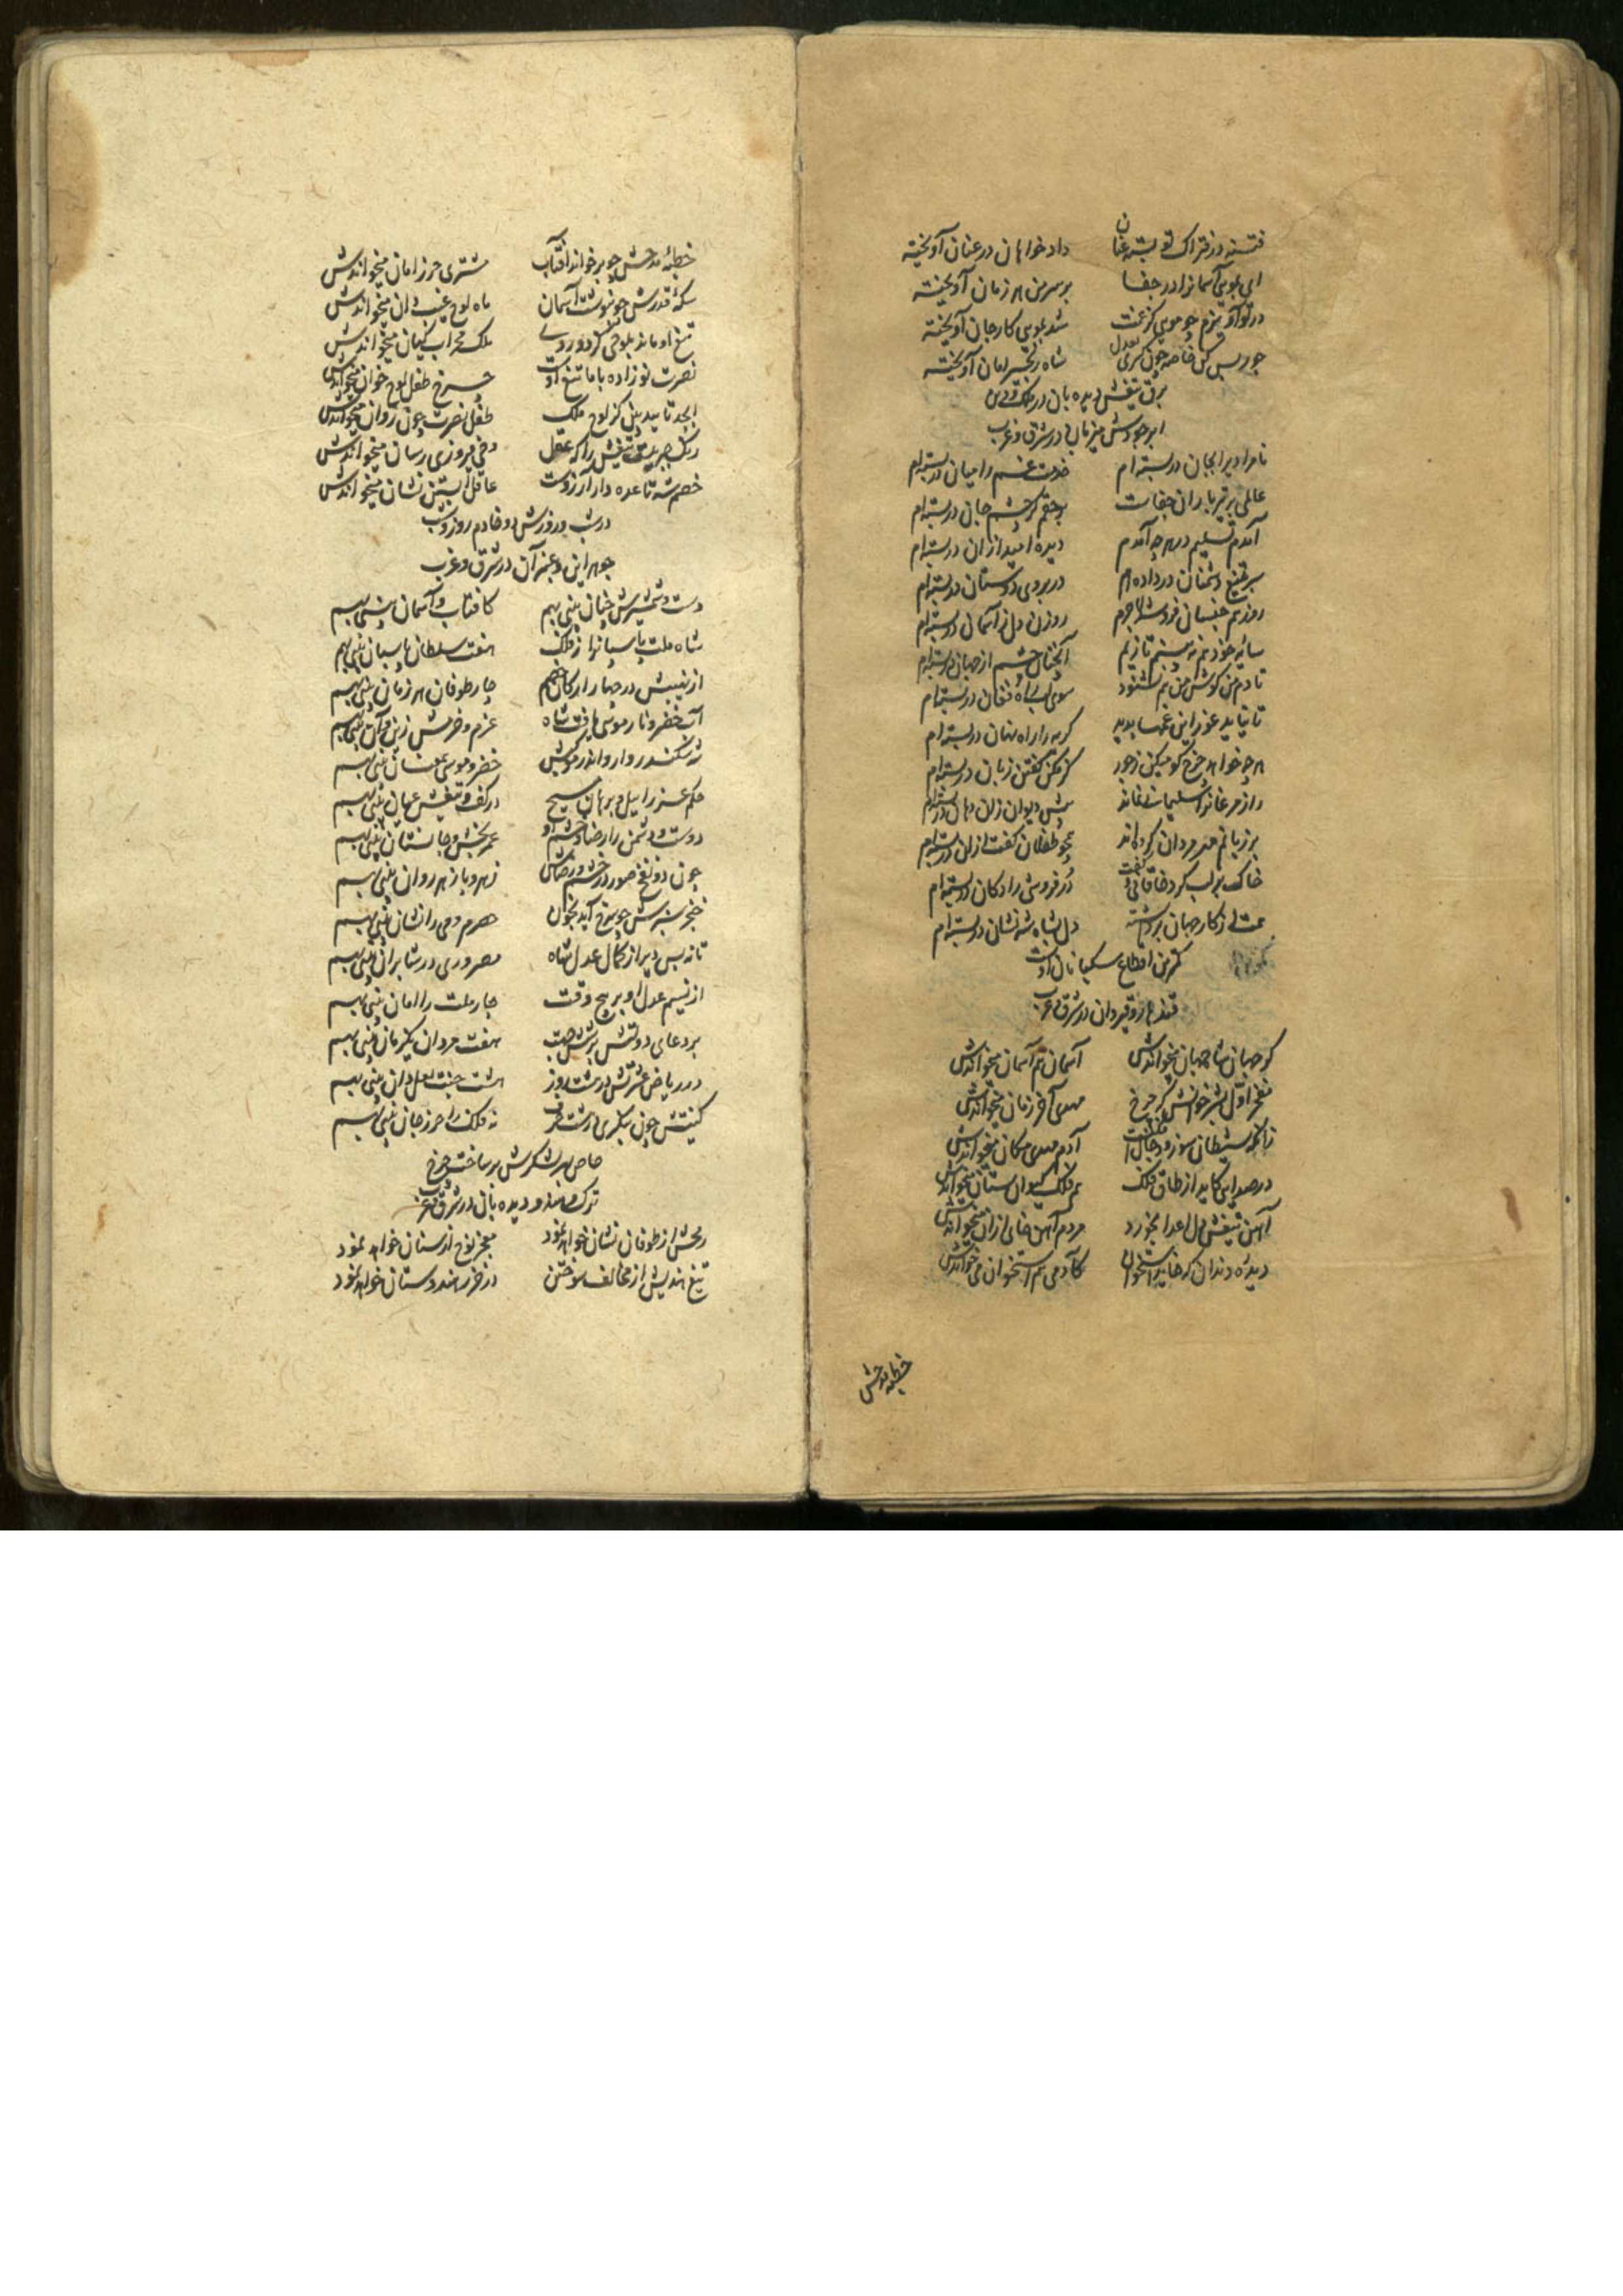 فتنه در فتراک تو بسته عنان داد خواهان در عنان آویخته
ای بمویی آسمانرا در جفا بر سر من هر زمان آویخته
در تو آویزم چو مویی کز غمت شد بمویی کار جان آویخته
جور بس کن خاصه چون کسری بعدل شاه زنجیر امان آویخته
برق تیغش دیده بان در ملک و دین
ابر جودش میزبان در شرق و غرب
نامرادیرا بجان در بسته ام خدمت غم را میان در بسته ام
عالمی پر تیر باران جفاست بر حقم کز چشم جان در بسته ام
آمدم تسلیم در هر چه آمدم دیده امید از ان در بسته ام
سر بتیغ دشمنان در داده ام در بروی دوستان در بسته ام
روزیم همجنسان فرو شد لاجرم روزن دل ز آسمان در بسته ام
سایه خود هم نه بینم تا زیم آنچنان چشم از جهان در بسته ام
تا دم من گوش من هم نشنود سوی لب راه فغان در بسته ام
تا نیاید غور این غمها پدید گریه را راه نهان در بسته ام
هر چه خواهد چرخ گو میکن ز جور کز مکن گفتن زبان در بسته ام
راز مرغانرا سلیمانی نماند پیش دیوان زان دهان در بسته ام
بر زبانم مهر مردان کرده اند نی چو طفلان گفت ازان در بسته ام
خاک بر لب کرد خاقانی و گفت در فروشی را دکان در بسته ام
همت از کار جهان برداشته دل بشاه شه نشان در بسته ام
کمترین اقطاع سگبانان اوست
قندهار و قیروان در شرق و غرب
کو جهان شاه جهان میخواندش آسمان هم آسمان میخواندش
مفخر اول بشر خوانش که چرخ مهدی آخر زمان میخواندش
زانکه شیطان سوز و دجال افکنست آدم مهدی مکان میخواندش
در صدایی کاید از طاق فلک هم فلک کیوان ستان میخواندش
آهن تیغش دل اعدا بخورد مردم آهن خای ازان میخواندش
دیده دندان که خاید استخوان کآدمی هم استخوان می خواندش
خطبه مدحش
خطبه مدحش چو بر خواند آفتاب مشتری حرز امان میخواندش
سکه قدرش چو بنوشت آسمان ماه لوح غیب دان میخواندش
تیغ او ماند بلوحی کز دو روی ملک محراب کیان میخواندش
نصرت نو زاده با ما تیغ اوست چرخ طفل لوح خوان میخواندش
ابجد تایید بین کز لوح ملک طفل نصرت چون روان میخواندش
رنگ جبریلست تیغش را که عقل وحی پیروزی رسان میخواندش
خصم شد تا عده دار آرزوست عاقل آبستن نشان میخواندش
در شب و روزش دو خادم روز و شب
جوهر این و عنبر آن در شرق و غرب
دست و شمشیرش چنان بینی بهم کافتاب و آسمان بینی بهم
شاه ملت پاسبانرا از فلک هفت سلطان پاسبان بینی بهم
از نهیبش در چهار ارکان خصم چار طوفان هر زمان بینی بهم
آب خضر و نار موسی یافت شاه عزم و حزمش زین و آن بینی بهم
شه سکندر وار و اندر موکبش خضر و موسی همعنان بینی بهم
حکم عزراییل و برهان مسیح در کف و تیغش عیان بینی بهم
دوست و دشمن را رضا و خشم او عمر بخش و جان ستان بینی بهم
چون دو نفخ صور در خشم و رضاش زهر و پازهر روان بینی بهم
خنجر سبزش چو سرخ آید بخون حصرم و می را نشان بینی بهم
تا نه بس دیر از کمال عدل شاه مصر و ری در شابران بینی بهم
از نسیم عدل او بر پنج وقت چار ملت را امان بینی بهم
بر دعای دولتش بر شش جهت هفت مردان یکزبان بینی بهم
در ریاض عشرتش در هشت روز هشت جنت نقل دان بینی بهم
کنیتش چون بنگری در شش حرف نه فلک را حرز جان بینی بهم
خاص بهر لشکرش بر ساخت چرخ
ترک و هندو دیده بان در شرق و غرب
رخش از طوفان نشان خواهد نمود معجز نوح از سنان خواهد نمود
تیغ هندیش از مخالف سوختن در خزر هندوستان خواهد نمود